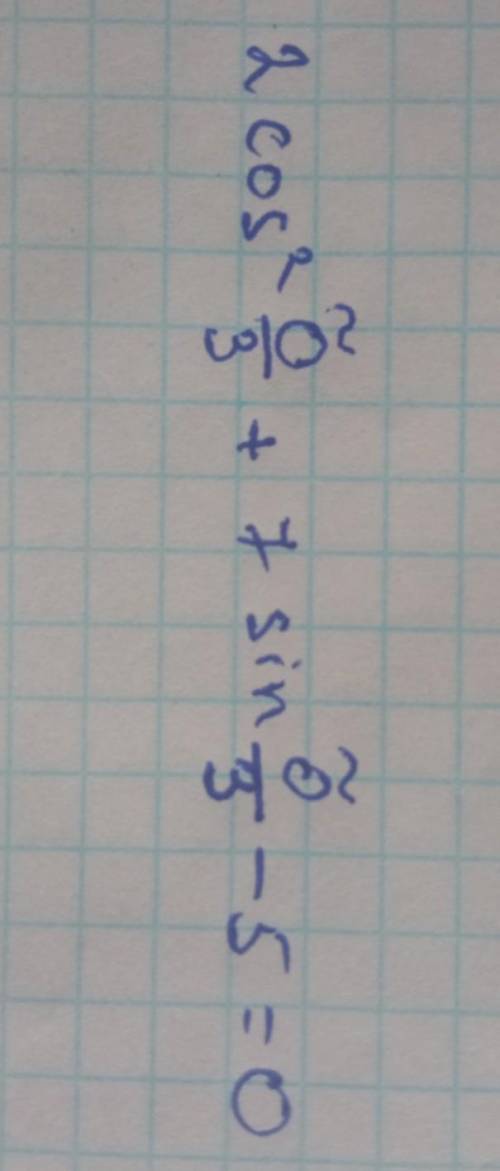 2 cos² õ/3 + 7 sin õ/3 - 5 = 0